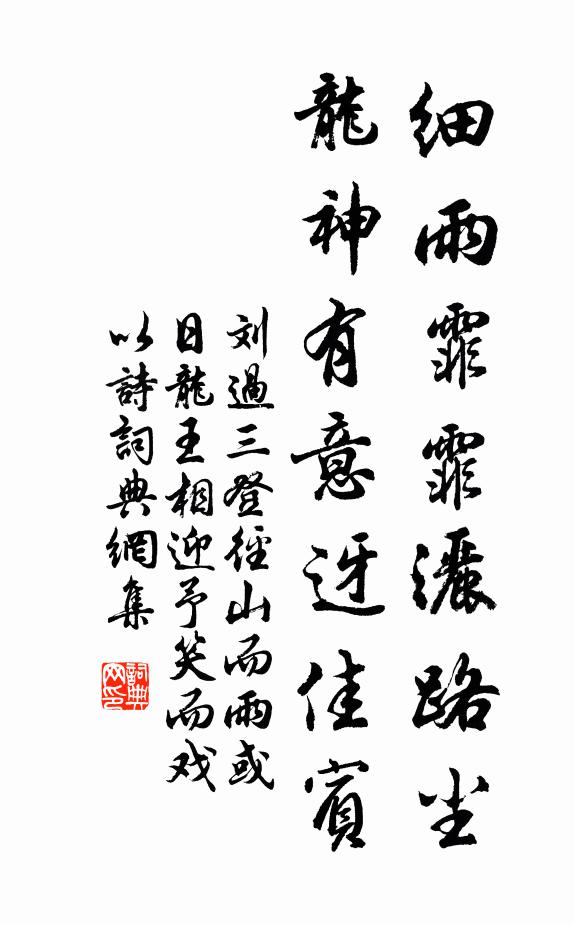 細雨霏霏灑路尘
龍神有意迓佳賓
刘過三登徑山而雨或
日龍王相迎予笑而戏
以詩詞典網集
詞典网印